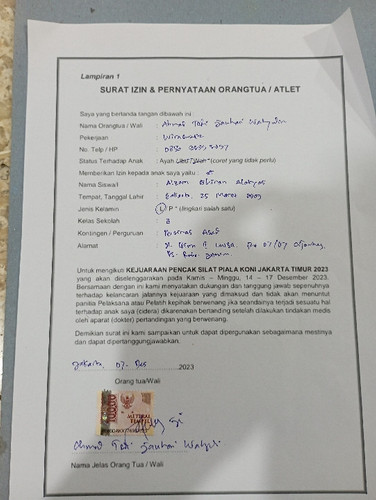 Lampiran 1
SURAT IZIN & PERNYATAAN ORANGTUA / ATLET
Saya yang bertanda tangan dibawah ini :
Nama Orangtua / Wali : Ahmad
Pekerjaan : Wiraswasta
No. Telp / HP :
Status Terhadap Anak : Ayah (coret yang tidak perlu)
Memberikan Izin kepada anak saya yaitu :
Nama Siswa/i :
Tempat, Tanggal Lahir : Jakarta, 25 Maret
Jenis Kelamin : L P * (lingkari salah satu)
Kelas Sekolah :
Kontingen / Perguruan :
Alamat : Jl.
Untuk mengikuti KEJUARAAN PENCAK SILAT PIALA KONI JAKARTA TIMUR 2023
yang akan diselenggarakan pada Kamis – Minggu, 14 – 17 Desember 2023.
Bersamaan dengan ini kami menyatakan dukungan dan tanggung jawab sepenuhnya
terhadap kelancaran jalannya kejuaraan yang dimaksud dan tidak akan menuntut
panitia Pelaksana atau Pelatih kepihak berwajib jika seandainya terjadi sesuatu hal
terhadap anak saya (cidera) dikarenakan bertanding setelah dilakukan tindakan medis
oleh aparat (dokter) pertandingan yang berwenang.
Demikian surat ini kami sampaikan untuk dapat dipergunakan sebagaimana mestinya
dan dapat dipertanggungjawabkan.
Jakarta, 07. Des 2023
Orang tua/Wali
10000
METERAI
TEMPEL
Ahmad
Nama Jelas Orang Tua / Wali